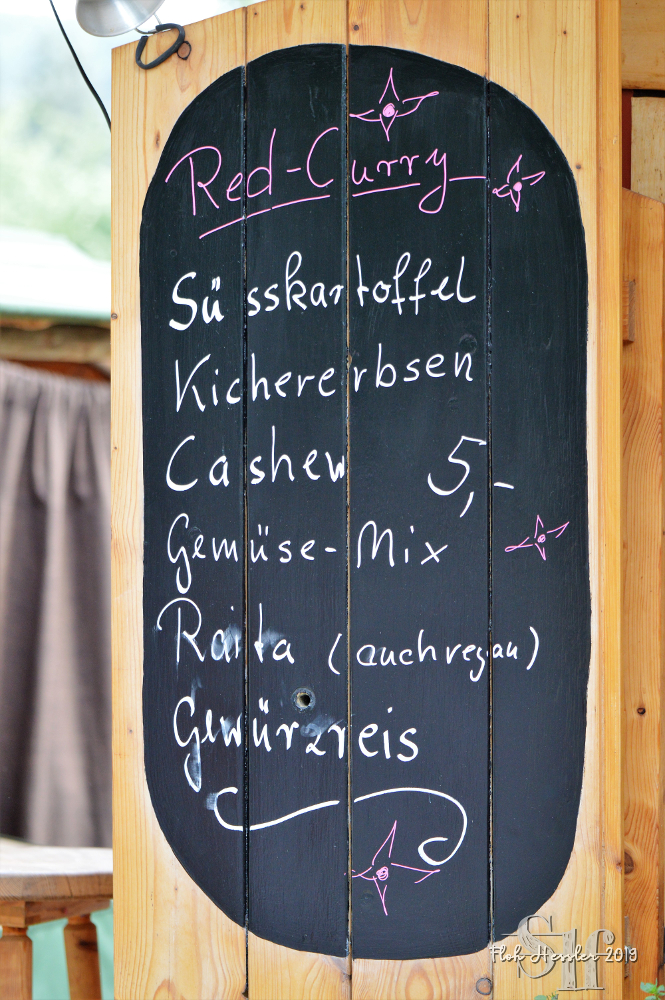 Red-Curry
Süsskartoffel
Kichererbsen
Cashew 5,-
Gemüse-Mix
Raita (auch vegan)
Gewürzreis
Floh Hessler 2019